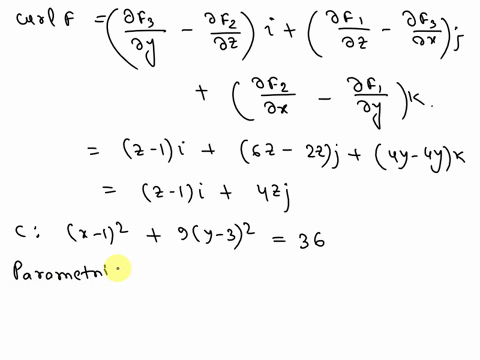 curl F = (∂F₃/∂y − ∂F₂/∂z) i + (∂F₁/∂z − ∂F₃/∂x) j
+ (∂F₂/∂x − ∂F₁/∂y) k.
= (z-1) i + (6z − 2z) j + (4y-4y) k
= (z-1) i + 4z j
C: (x-1)² + 9(y-3)² = 36
Parametri